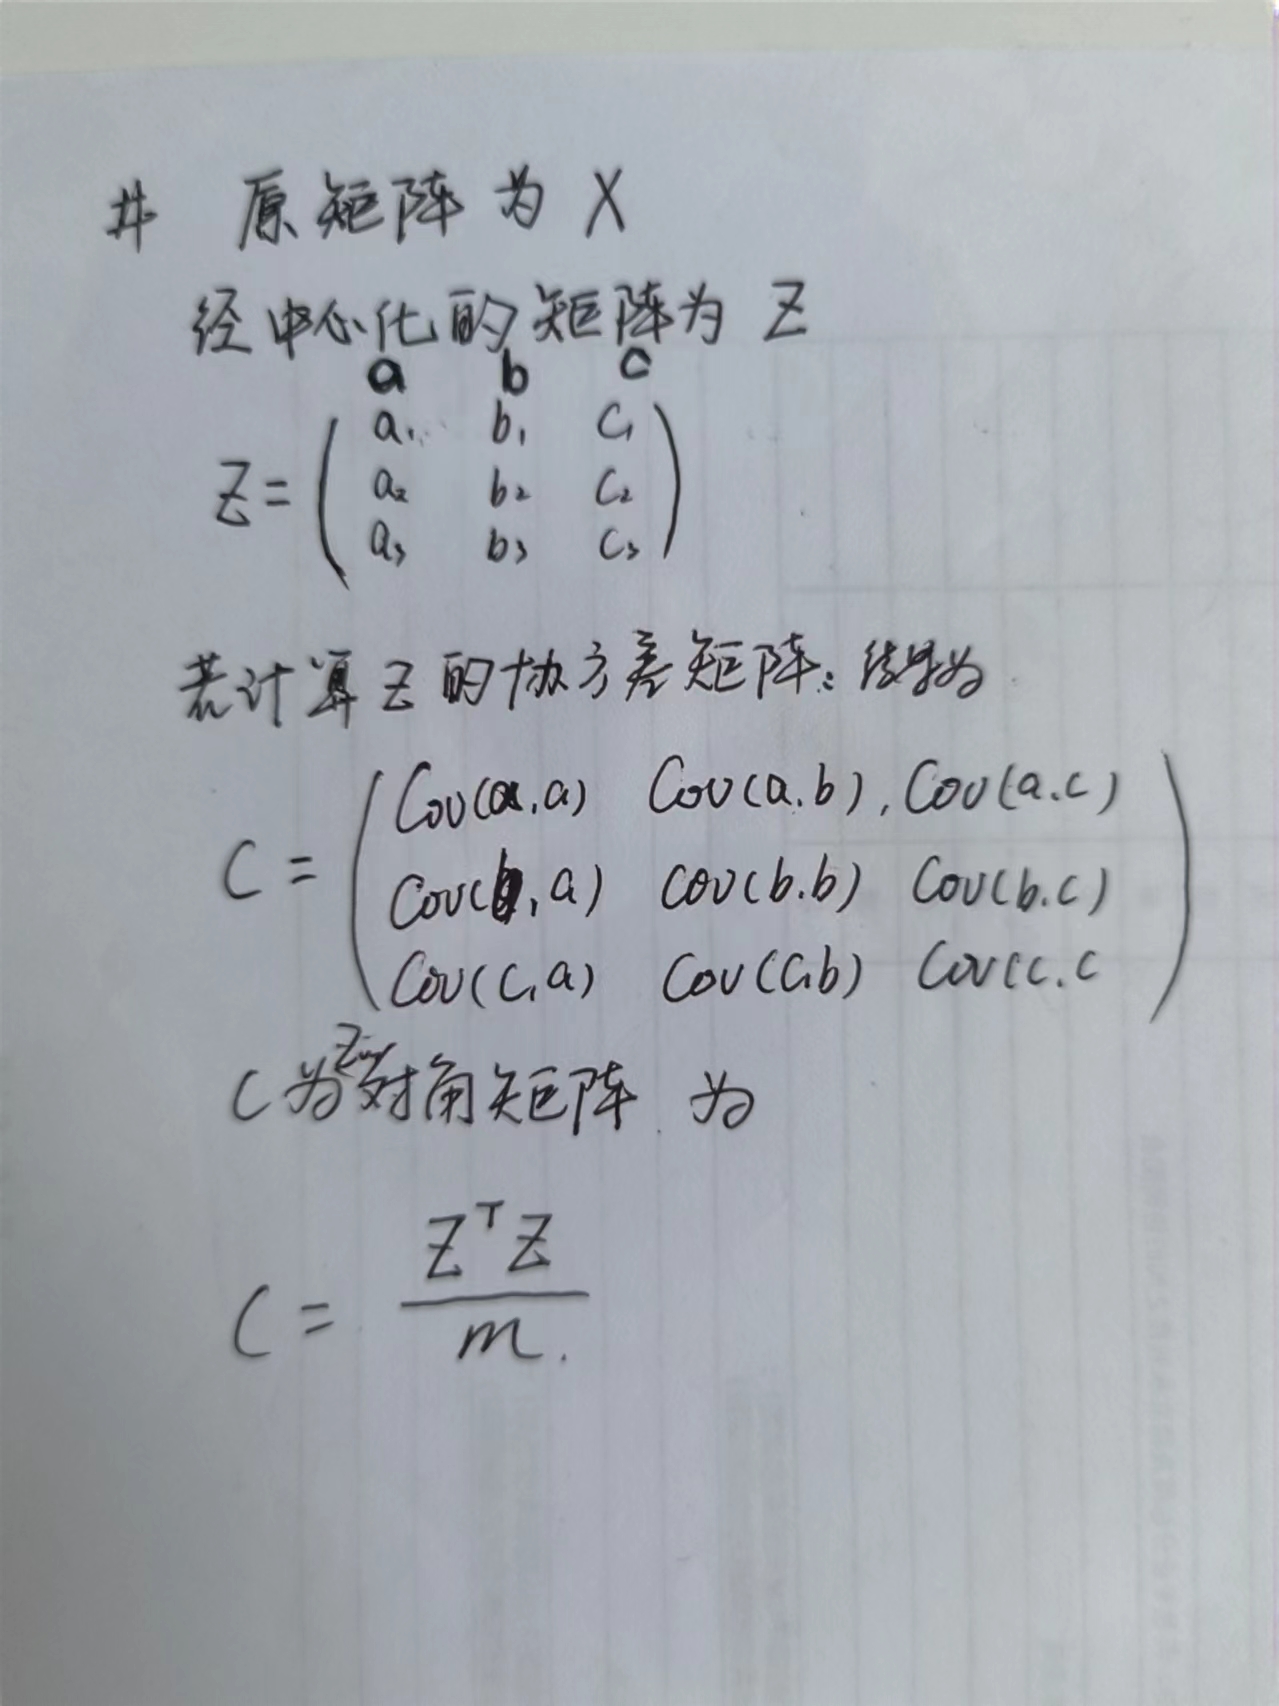 # 原矩阵为 X
经中心化的矩阵为 Z
a b c
a₁ b₁ c₁
Z = a₂ b₂ c₂
a₃ b₃ c₃
若计算 Z 的协方差矩阵: 结果为
Cov(a,a) Cov(a.b), Cov(a.c)
C = Cov(b,a) cov(b.b) Cov(b.c)
Cov(c,a) Cov(c,b) Cov(c.c
C 为对角矩阵 为
C = Zᵀ Z / m.